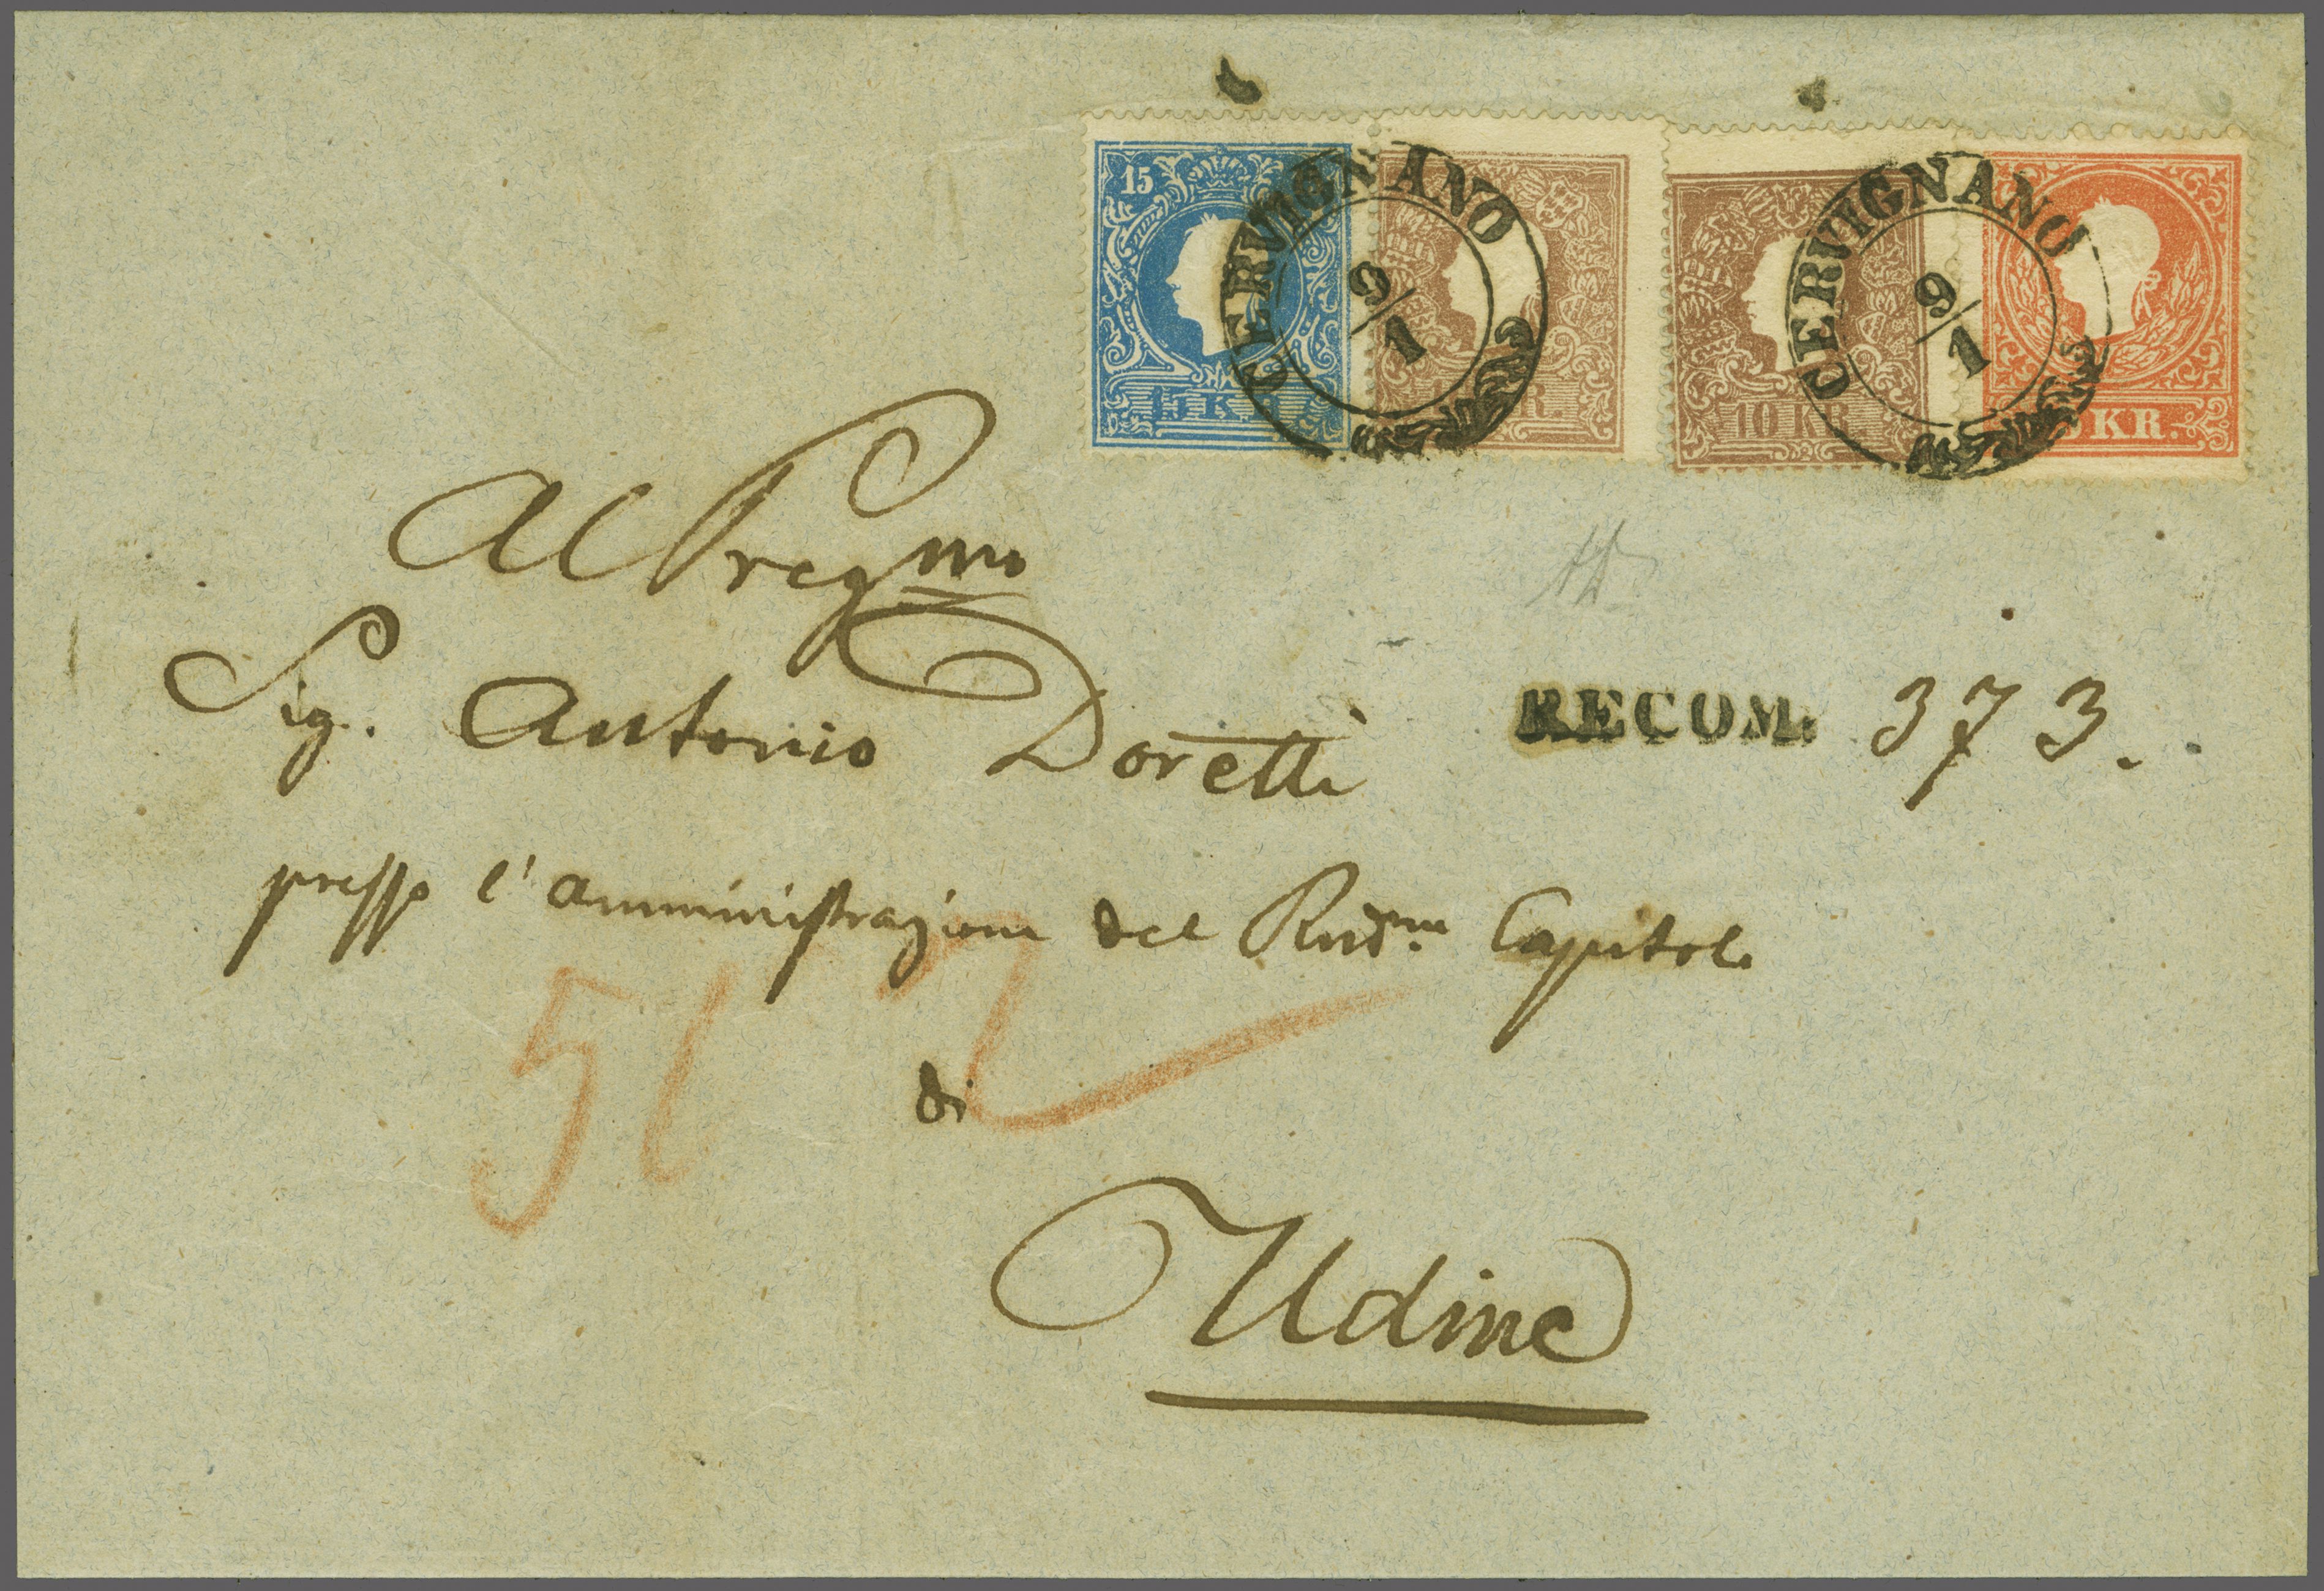 15
15 KR.
CERVIGNANO
9/1
10 KR
CERVIGNANO
9/1
KR.
Al Pregmo
Sig. Antonio Doretti
RECOM. 373.
presso l'amministrazione del Rndmo Capitolo
di
Udine